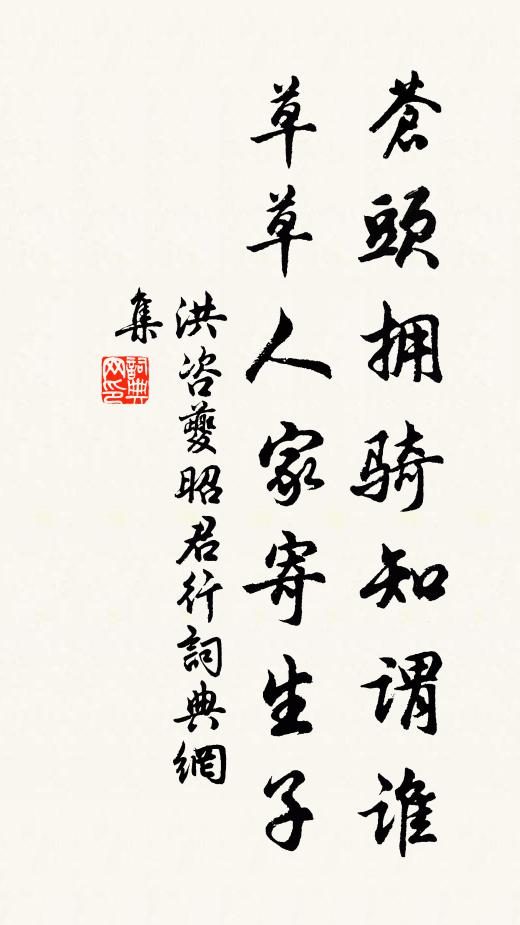 蒼頭拥骑知谓谁
草草人家寄生子
洪咨夔昭君行詞典網
集
詞典
网印